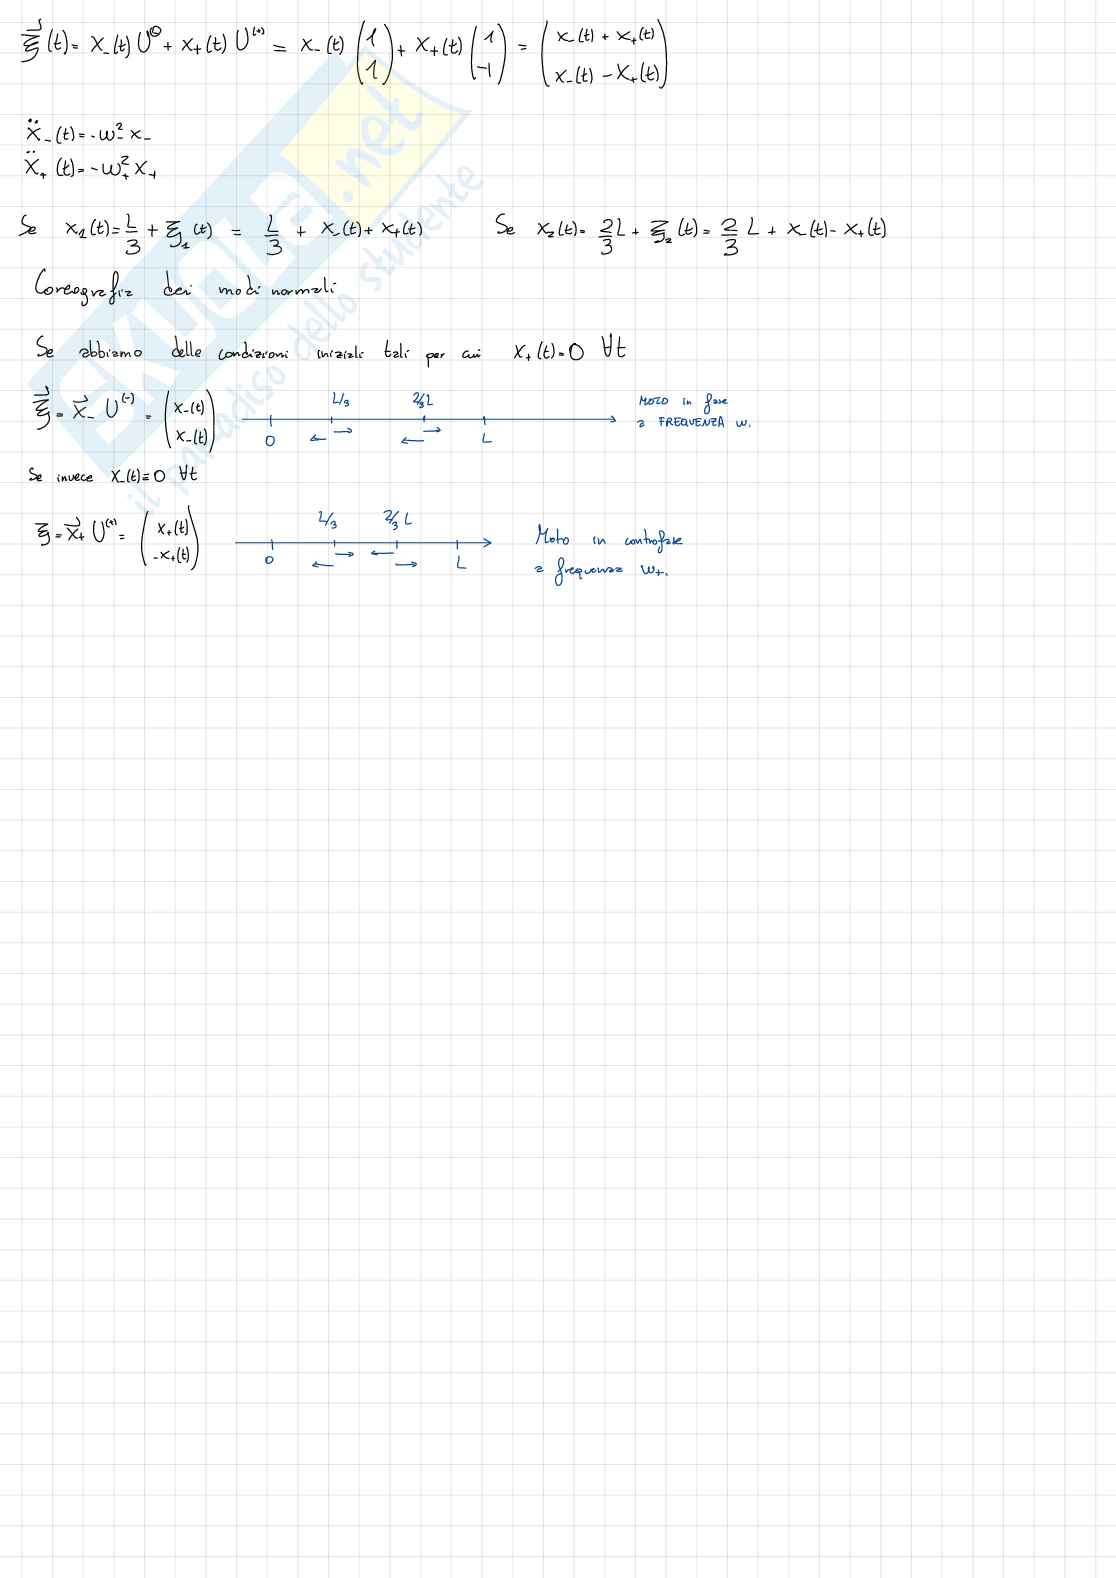 ξ⃗(t) = x₋(t) U⁽⁻⁾ + x₊(t) U⁽⁺⁾ = x₋(t) (1 1) + x₊(t) (1 -1) = (x₋(t) + x₊(t) x₋(t) - x₊(t))
ẍ₋(t) = -ω₋² x₋
ẍ₊(t) = -ω₊² x₊
Se x₁(t) = L/3 + ξ₁(t) = L/3 + x₋(t) + x₊(t) Se x₂(t) = 2/3 L + ξ₂(t) = 2/3 L + x₋(t) - x₊(t)
Coreografia dei modi normali
Se abbiamo delle condizioni iniziali tali per cui x₊(t) = 0 ∀t
ξ⃗ = x⃗₋ U⁽⁻⁾ = (x₋(t) x₋(t))
L/3 2/3 L
0 L
MOTO in fase
a FREQUENZA ω₋
Se invece x₋(t) = 0 ∀t
ξ = x⃗₊ U⁽⁺⁾ = (x₊(t) -x₊(t))
L/3 2/3 L
0 L
Moto in controfase
a frequenza ω₊.
SKUOLA.net
il paradiso dello studente